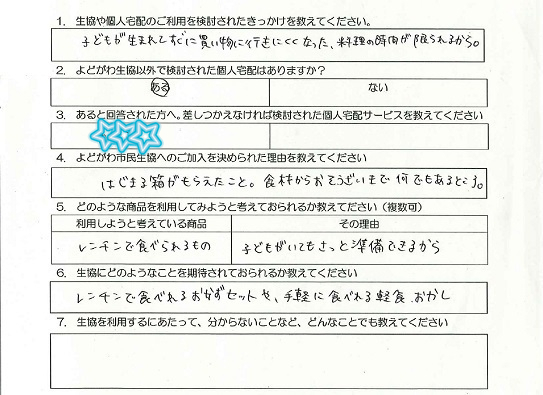 1. 生協や個人宅配のご利用を検討されたきっかけを教えてください。
子どもが生まれてすぐに買い物に行きにくくなった、料理の時間が限られるから。
2. よどがわ生協以外で検討された個人宅配はありますか?
ある ない
3. あると回答された方へ。差しつかえなければ検討された個人宅配サービスを教えてください
4. よどがわ市民生協へのご加入を決められた理由を教えてください
はじまる箱がもらえたこと。食材からおそうざいまで何でもあるところ。
5. どのような商品を利用してみようと考えておられるか教えてださい(複数可)
利用しようと考えている商品 その理由
レンチンで食べられるもの 子どもがいてもさっと準備できるから
6. 生協にどのようなことを期待されておられるか教えてください
レンチンで食べれるおかずセットや、手軽に食べれる軽食、おかし
7. 生協を利用するにあたって、分からないことなど、どんなことでも教えてください